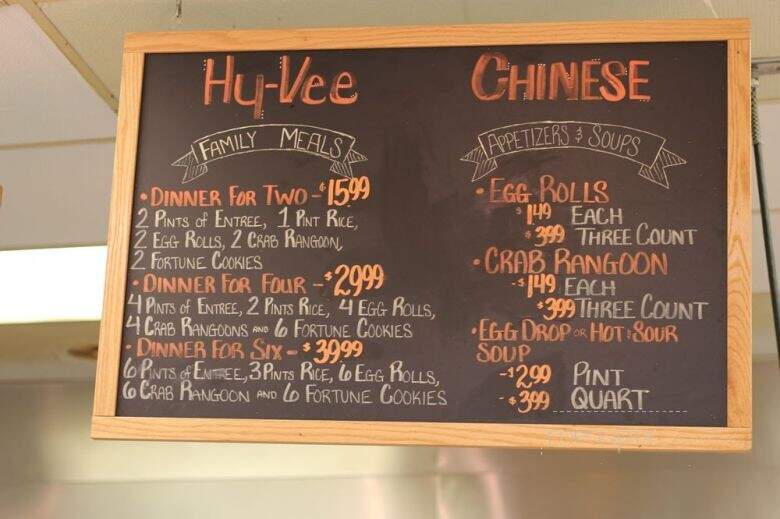 Hy-Vee CHINESE
FAMILY MEALS
• DINNER FOR TWO - $15.99
2 PINTS of ENTREE, 1 PINT RICE,
2 EGG ROLLS, 2 CRAB RANGOON,
2 FORTUNE COOKIES
• DINNER FOR FOUR - $29.99
4 PINTS of ENTREE, 2 PINTS RICE, 4 EGG ROLLS,
4 CRAB RANGOONS AND 6 FORTUNE COOKIES
• DINNER FOR SIX - $39.99
6 PINTS of ENTREE, 3 PINTS RICE, 6 EGG ROLLS,
6 CRAB RANGOON AND 6 FORTUNE COOKIES
APPETIZERS & SOUPS
• EGG ROLLS
$1.49 EACH
$3.99 THREE COUNT
• CRAB RANGOON
- $1.49 EACH
$3.99 THREE COUNT
• EGG DROP OR HOT & SOUR
SOUP
- $2.99 PINT
- $3.99 QUART